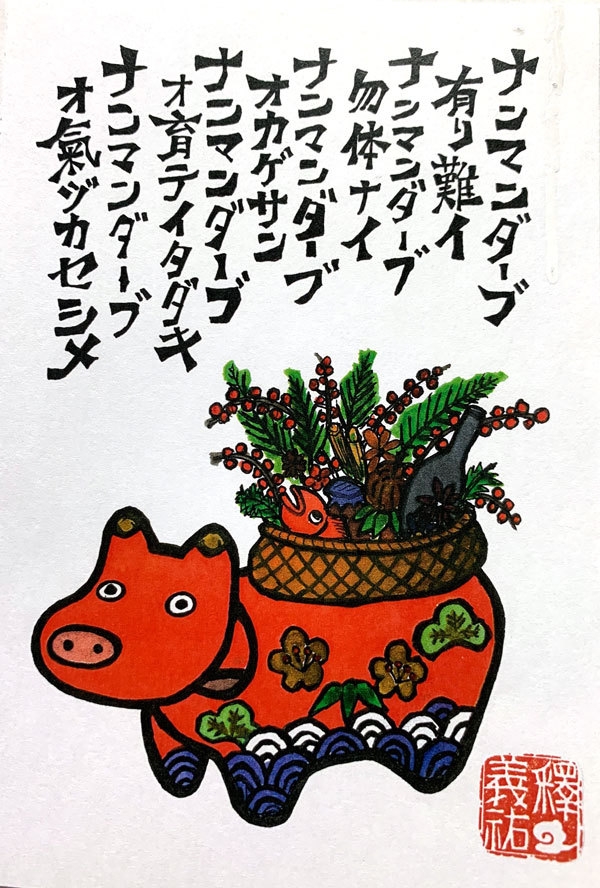 ナンマンダーブ
有り難イ
ナンマンダーブ
勿体ナイ
ナンマンダーブ
オカゲサン
ナンマンダーブ
オ育テイタダキ
ナンマンダーブ
オ氣ヅカセシメ
釋
義祐